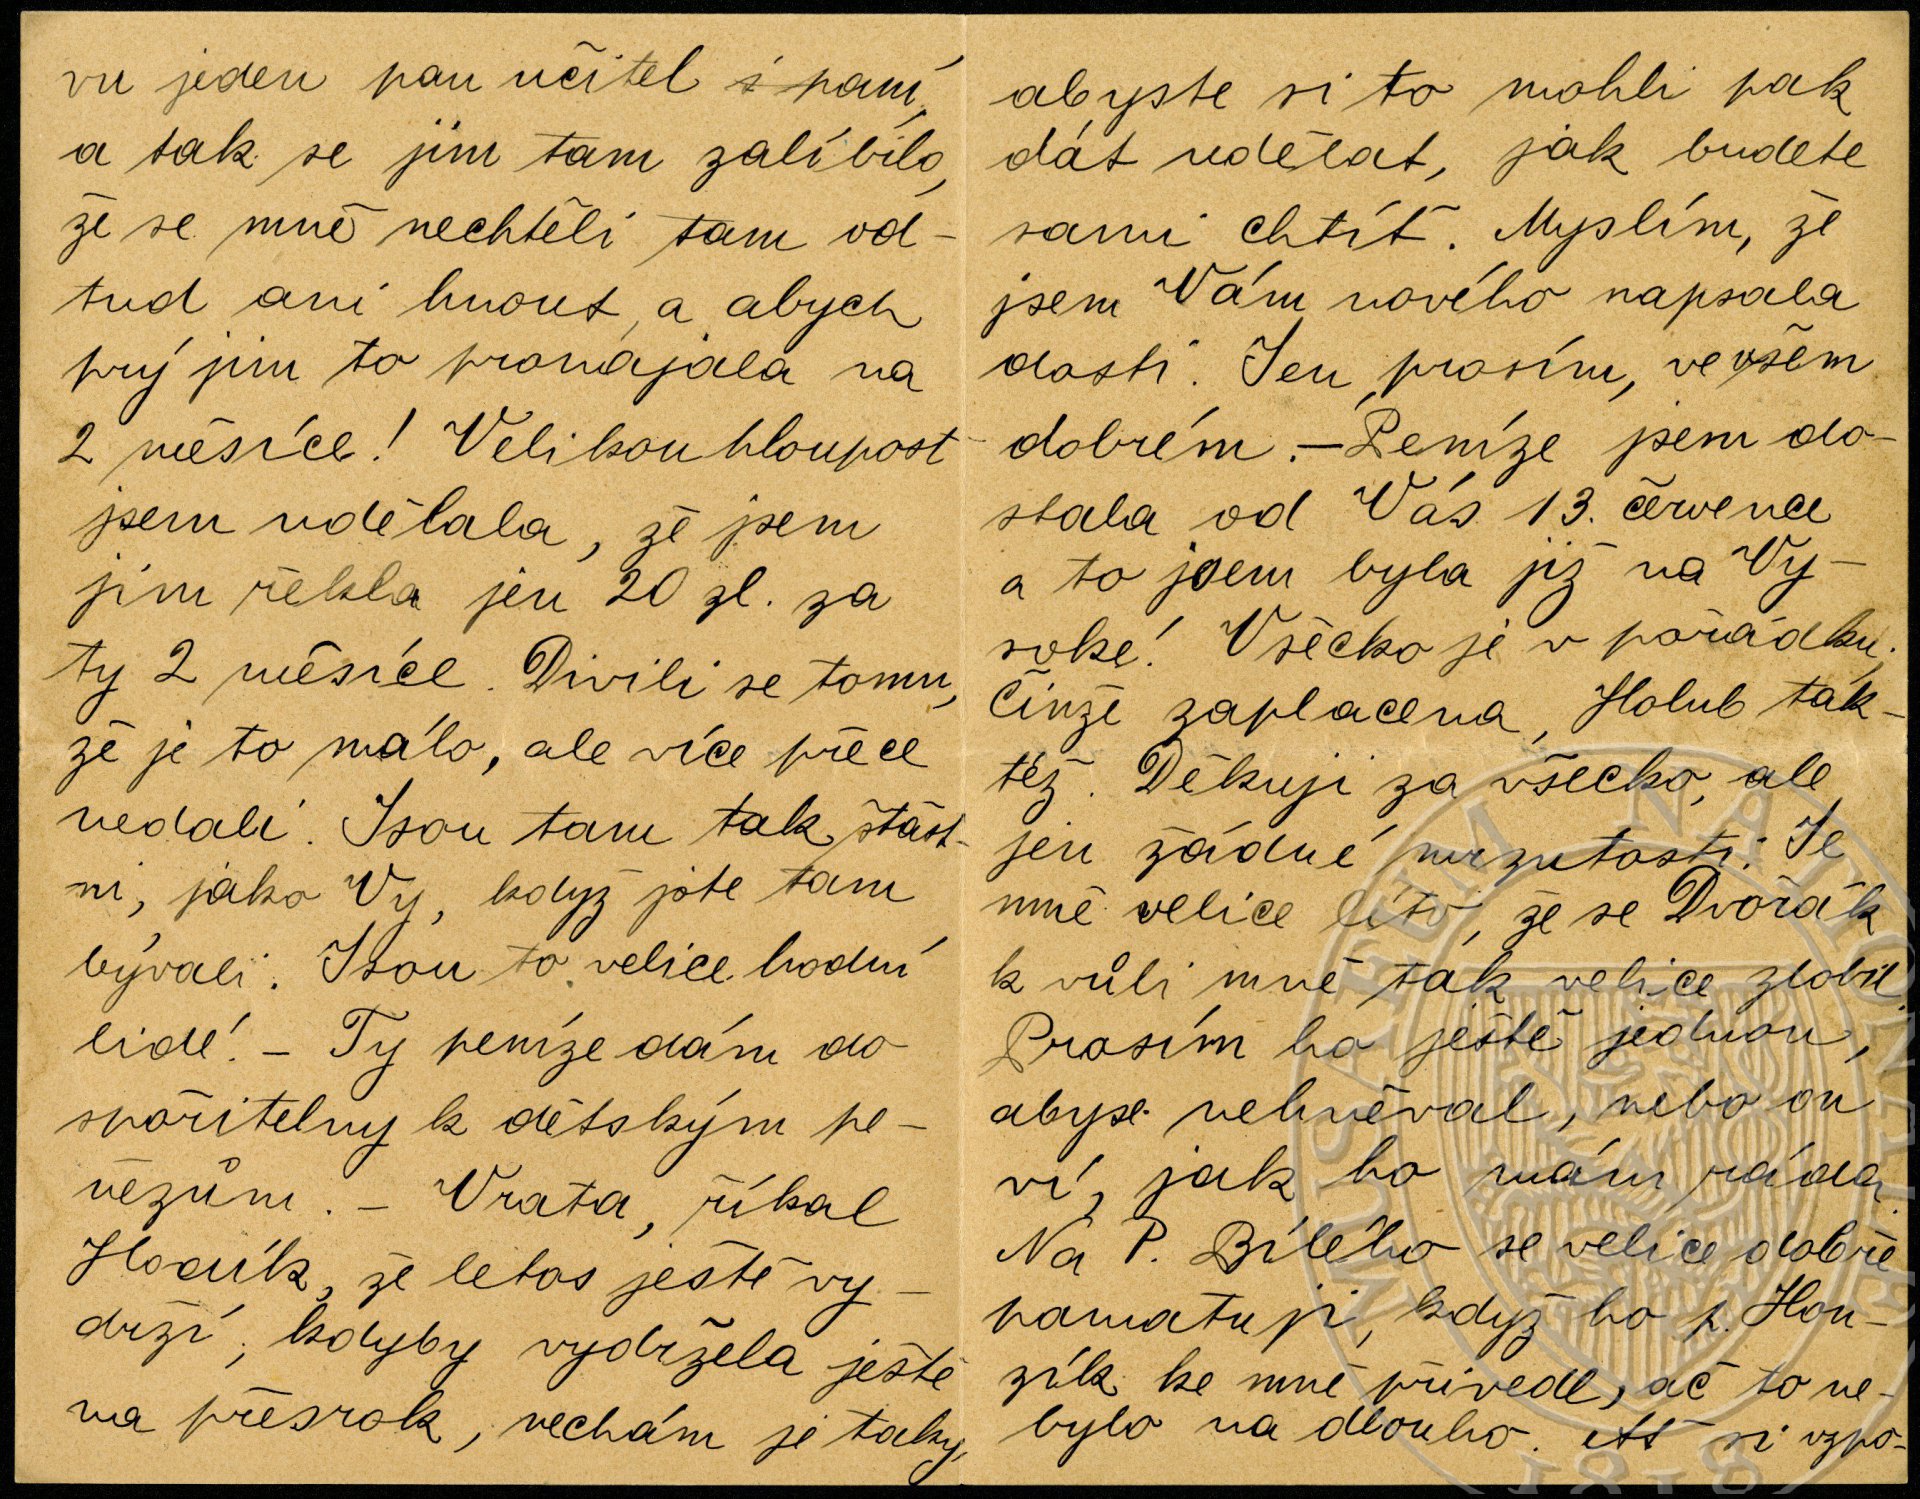 vu jeden pan učitel s paní,
a tak se jim tam zalíbilo,
že se mně nechtěli tam od-
tud ani hnout, a abych
prý jim to pronajala na
2 měsíce! Velikou hloupost
jsem udělala, že jsem
jim řekla jen 20 zl. za
ty 2 měsíce. Divili se tomu,
že je to málo, ale více přece
nedali. Jsou tam tak šťast-
ni, jako Vy, když jste tam
bývali. Jsou to velice hodní
lidé! - Ty peníze dám do
spořitelny k dětským pe-
nězům. - Vrata, říkal
Hodík, že letos ještě vy-
drží, kdyby vydržela ještě
na přesrok, nechám je taky,
abyste si to mohli pak
dát udělat, jak budete
sami chtít. Myslím, že
jsem Vám nového napsala
dosti. Jen, prosím, ve všem
dobrém. - Peníze jsem do-
stala od Vás 13. července
a to jsem byla již na Vy-
soké! Všecko je v pořádku,
činže zaplacena, Holub tak-
též. Děkuji za všecko, ale
jen žádné mrzutosti! Je
mně velice líto, že se Dvořák
k vůli mně tak velice zlobil.
Prosím ho ještě jednou,
aby se nehněval, nebo on
ví, jak ho mám ráda.
Na P. Bílého se velice dobře
pamatuji, když ho p. Hon-
zík ke mně přivedl, ač to ne-
bylo na dlouho. Ať si vzpo-
MUSAEUM NATIONALE
1818